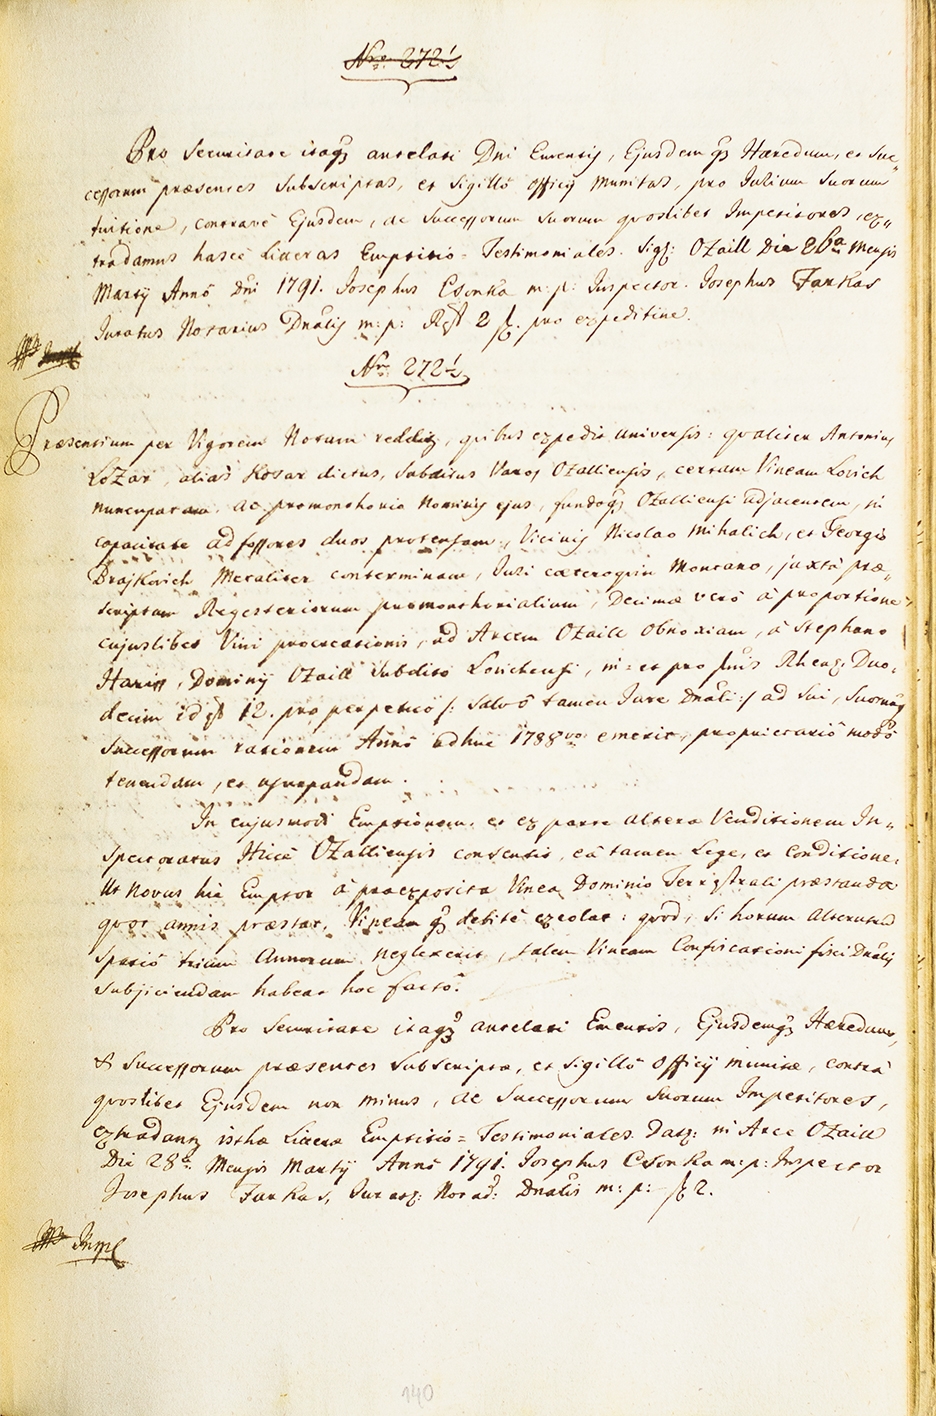 Nro. 272½
Pro Securitate itaq3 antelati Dni Ementis, Ejusdem q3 Hæredum, et Suc„
cessorum præsentes Subscriptas, et Sigillô officÿ munitas, pro Jurium Suorum
tuitione, contra vè Ejusdem, ac Successorum Suorum quoslibet Impetitores, ex„
tradamus hasce Literas Emptitio = Testimoniales. Sig: Ozaill Die 26a Mensis
Martÿ Annô Dni 1791. Josephus Csonka m: p: Inspector. Josephus Farkas
Juratus Notarius Dnalis m: p: 2 f. pro expeditione.
Nro. 272½
Præsentium per Vigorem Notum reddit, quibus expedit universis: qualiter Antonius
Lozar, alias Kosar dictus, Subditus Varos Ozalliensis, certam Vineam Lovich
nuncupatam, ac promonthorio Nominis ejus, fundoq3 Ozalliensi adjacentem, in
capacitate ad fossores duos protensam, Vicinis Nicolao Mihalich, et Georgio
Brajkovich Metaliter conterminam, Juri cæteroquin Montano, juxtà præ„
scriptum Regesteriorum promonthorialium, Decimæ verò à proportione
cujuslibet Vini procreationis, ad Arcem Ozaill Obnoxiam, à Stephano
Dominÿ Ozaill Subdito Lovichensi, in = et pro fnis Rhen: Duo„
decim id est 12. pro perpetuò /: Salvô tamen Jure Dnali :/ ad Sui, Suorumq3
Successorum rationem Annô adhuc 1788vo emerit, proprietariô modô
tenendam, et usurpandam.
In cujusmodi Emptionem, et ex parte altera Venditionem In„
spectoratus Hicce Ozalliensis consentit, eâ tamen Lege, et Conditione:
Ut Novus hic Emptor à præexposita Vinea Dominio Terrestrali præstanda
quot annis præstat, Vineam q3 debitè excolat: quod, si horum alterutrum
Spatiô trium Annorum neglexerit, talem Vineam Confiscationi fisci Dnalis
Subjiciendam habeat hoc factô.
Pro Securitate itaq3 antelati Ementis, Ejusdemq3 Hæredum,
& Successorum præsentes Subscriptæ, et Sigillô Officÿ munitæ, contrà
quoslibet Ejusdem non minus, ac Successorum Suorum Impetitores,
extradantur isthæ Literæ Emptitio = Testimoniales. Dat: in Arce Ozaill
Die 28a Mensis Martÿ Annô 1791. Josephus Csonka m: p: Inspector
Josephus Farkas, Jurat: Notar: Dnalis m: p: f 2.
140